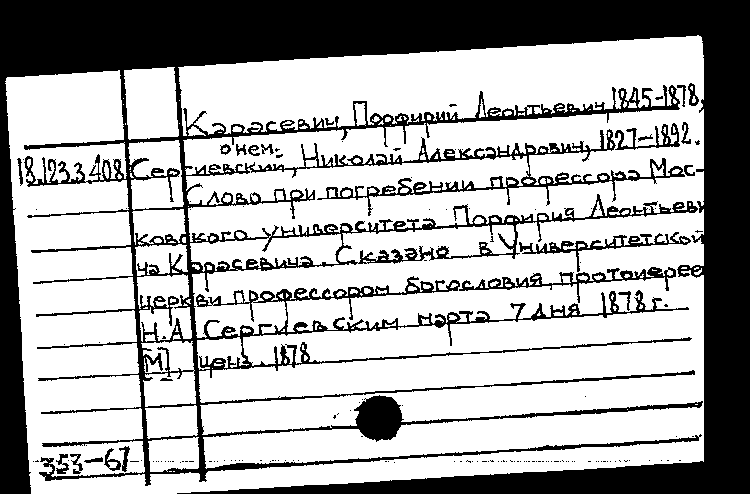 Карасевич, Порфирий Леонтьевич, 1845-1878,
о нем.
18.123.3.408 Сергиевский, Николай Александрович, 1827-1892.
Слово при погребении профессора Мос-
ковского университета Порфирия Леонтьеви
ча Карасевича. Сказано в Университетской
церкви профессором богословия, протоиерее
Н.А. Сергиевским марта 7 дня 1878 г.
[М], ценз. 1878.
353-67